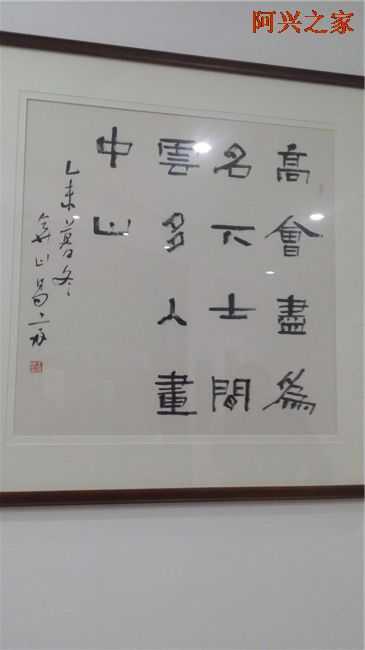 阿兴之家
高會盡為
名下士間
雲多入畫
中山
乙未暮冬